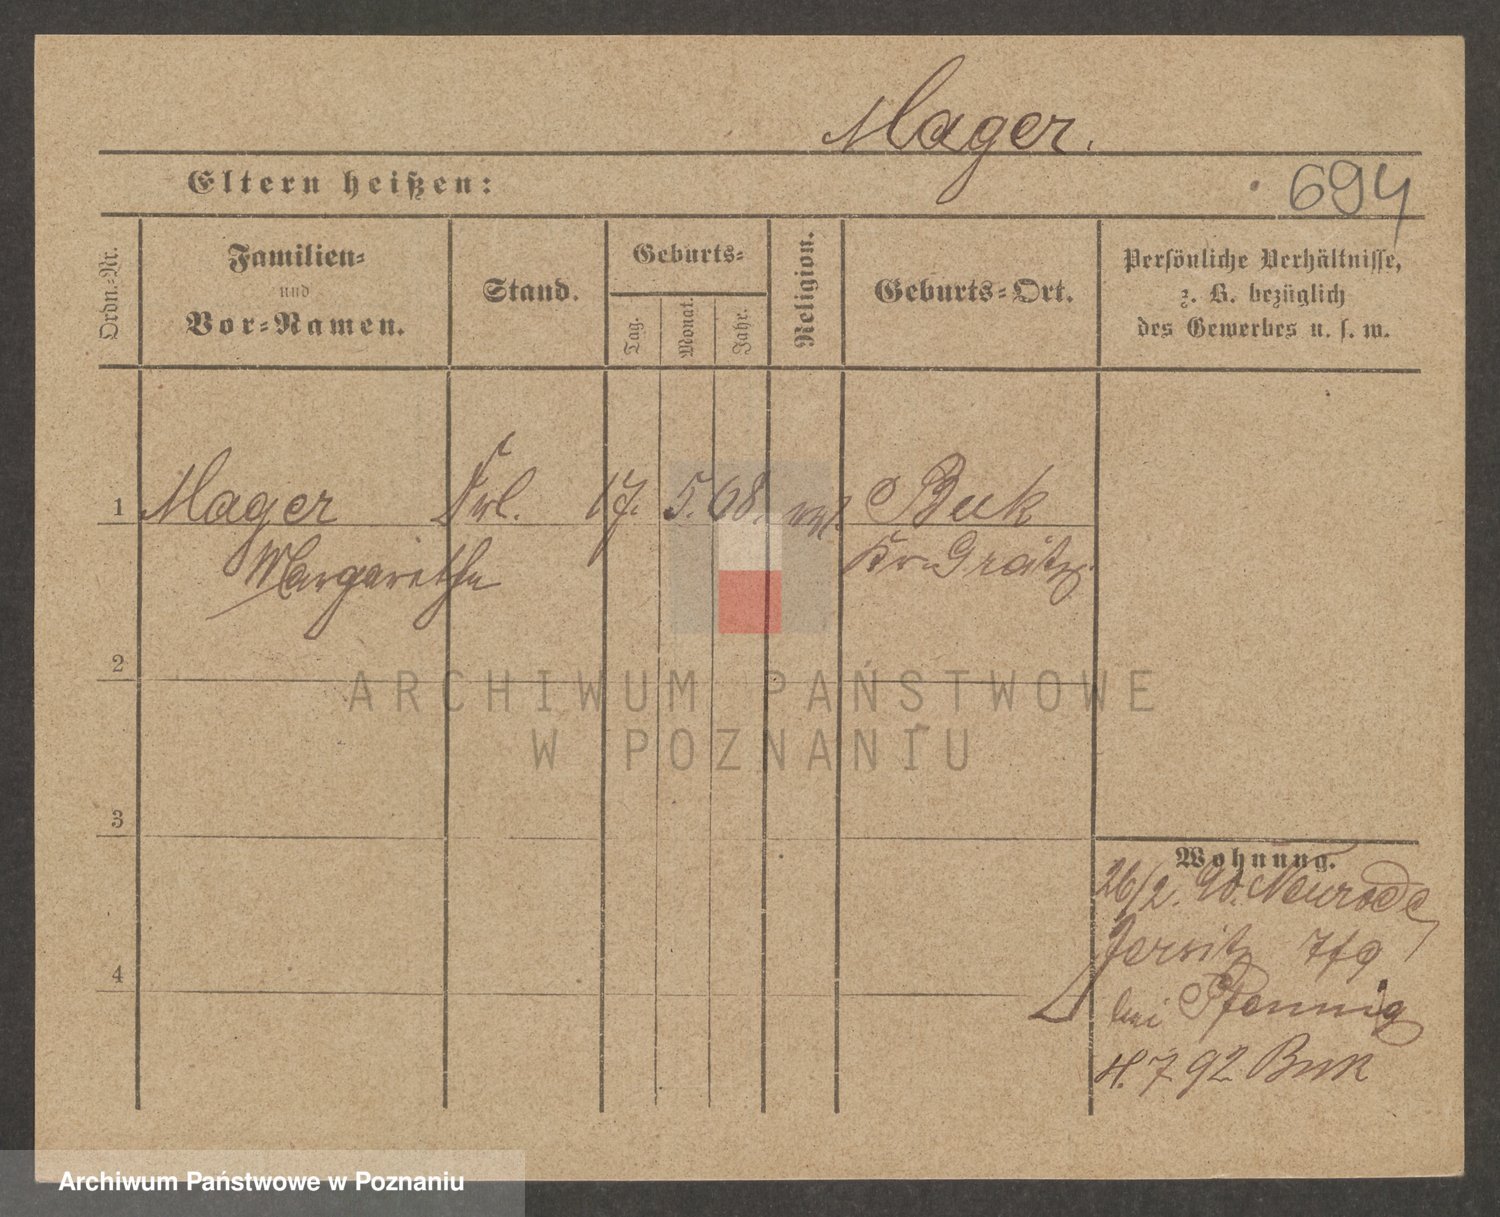 Mager.
Eltern heißen:
694
Ordn.-Nr.
Familien-
und
Vor-Namen.
Stand.
Geburts-
Tag.
Monat.
Jahr.
Religion.
Geburts-Ort.
Persönliche Verhältnisse,
z. B. bezüglich
des Gewerbes u. s. w.
1 Mager Frl. 17. 5. 68. Buk
Margarethe Kr. Grätz.
2
ARCHIWUM PAŃSTWOWE
W POZNANIU
3
Wohnung.
26/2. 90. Neurode
Jersitz
4
bei Pfennig
4. 7 92 Buk
Archiwum Państwowe w Poznaniu